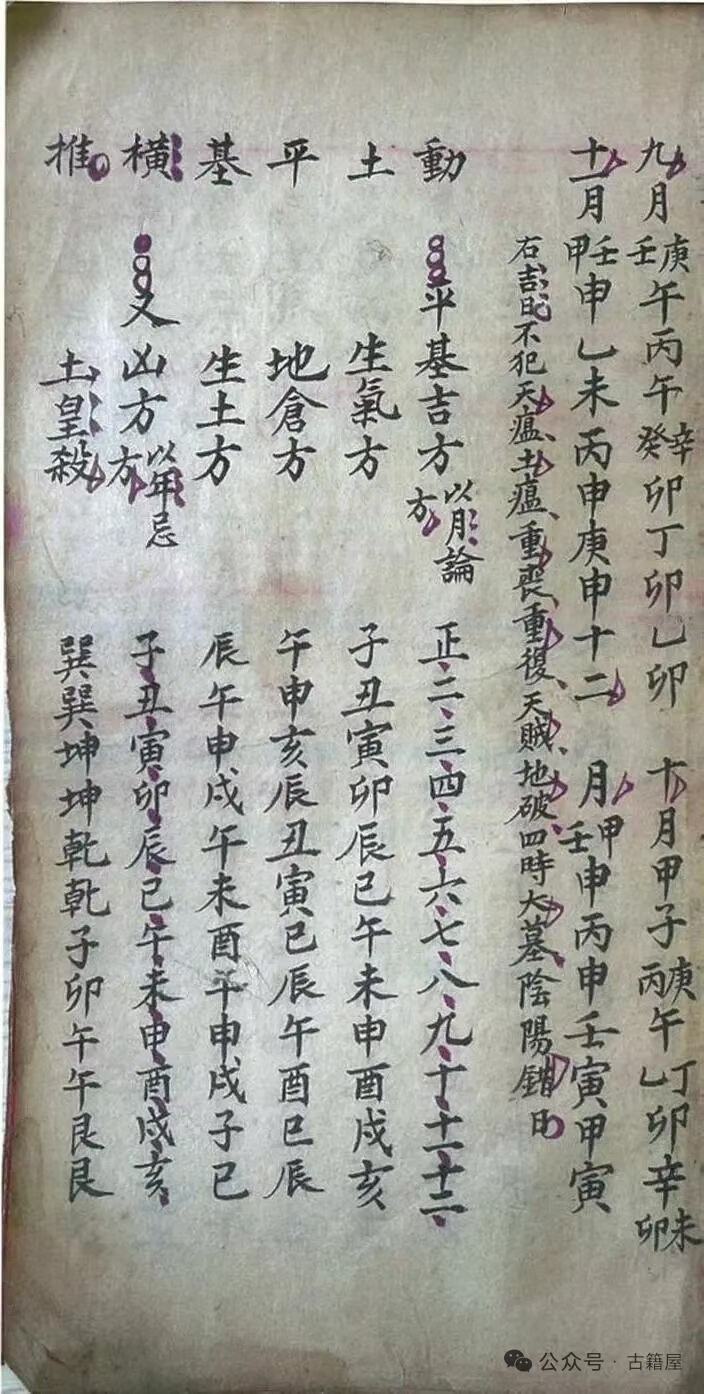 九月庚壬午丙午辛癸卯丁卯乙卯 十月甲子庚丙午丁乙卯辛未卯
十一月壬甲申乙未丙申庚申十二月甲壬申丙申壬寅甲寅
右吉日不犯天瘟土瘟重喪重復天賊地破四時大墓陰陽錯日
動 平基吉方以月論方 正二三四五六七八九十十一十二
土 生氣方 子丑寅卯辰巳午未申酉戌亥
平 地倉方 午申亥辰丑寅巳辰午酉巳辰
基 生土方 辰午申戌午未酉午申戌子巳
橫 又凶方以年忌方 子丑寅卯辰巳午未申酉戌亥
推 土皇殺 巽巽坤坤乾乾子卯午午艮艮
公众号·古籍屋